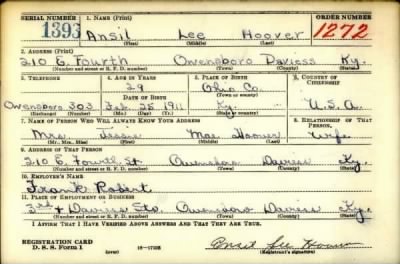 SERIAL NUMBER 1. NAME (Print) ORDER NUMBER
1393 Ansil Lee Hoover 1272
(First) (Middle) (Last)
2. ADDRESS (Print)
210 E. Fourth Owensboro Daviess Ky.
(Number and street or R. F. D. number) (Town) (County) (State)
3. TELEPHONE 4. AGE IN YEARS 5. PLACE OF BIRTH 6. COUNTRY OF CITIZENSHIP
29 Ohio Co.
DATE OF BIRTH (Town or county)
Owensboro 303 Feb. 25 1911 Ky. U.S.A.
(Exchange) (Number) (Mo.) (Day) (Yr.) (State or country)
7. NAME OF PERSON WHO WILL ALWAYS KNOW YOUR ADDRESS 8. RELATIONSHIP OF THAT PERSON
Mrs. Mae Hoover Wife
(Mr., Mrs., Miss) (First) (Middle) (Last)
9. ADDRESS OF THAT PERSON
210 E. Fourth St. Owensboro Daviess Ky.
(Number and street or R. F. D. number) (Town) (County) (State)
10. EMPLOYER'S NAME
Frank Robert
11. PLACE OF EMPLOYMENT OR BUSINESS
3rd & Daviess Sts. Owensboro Daviess Ky.
(Number and street or R. F. D. number) (Town) (County) (State)
I AFFIRM THAT I HAVE VERIFIED ABOVE ANSWERS AND THAT THEY ARE TRUE.
REGISTRATION CARD
D. S. S. Form 1 (over) Ansil Lee Hoover
(Registrant's signature)